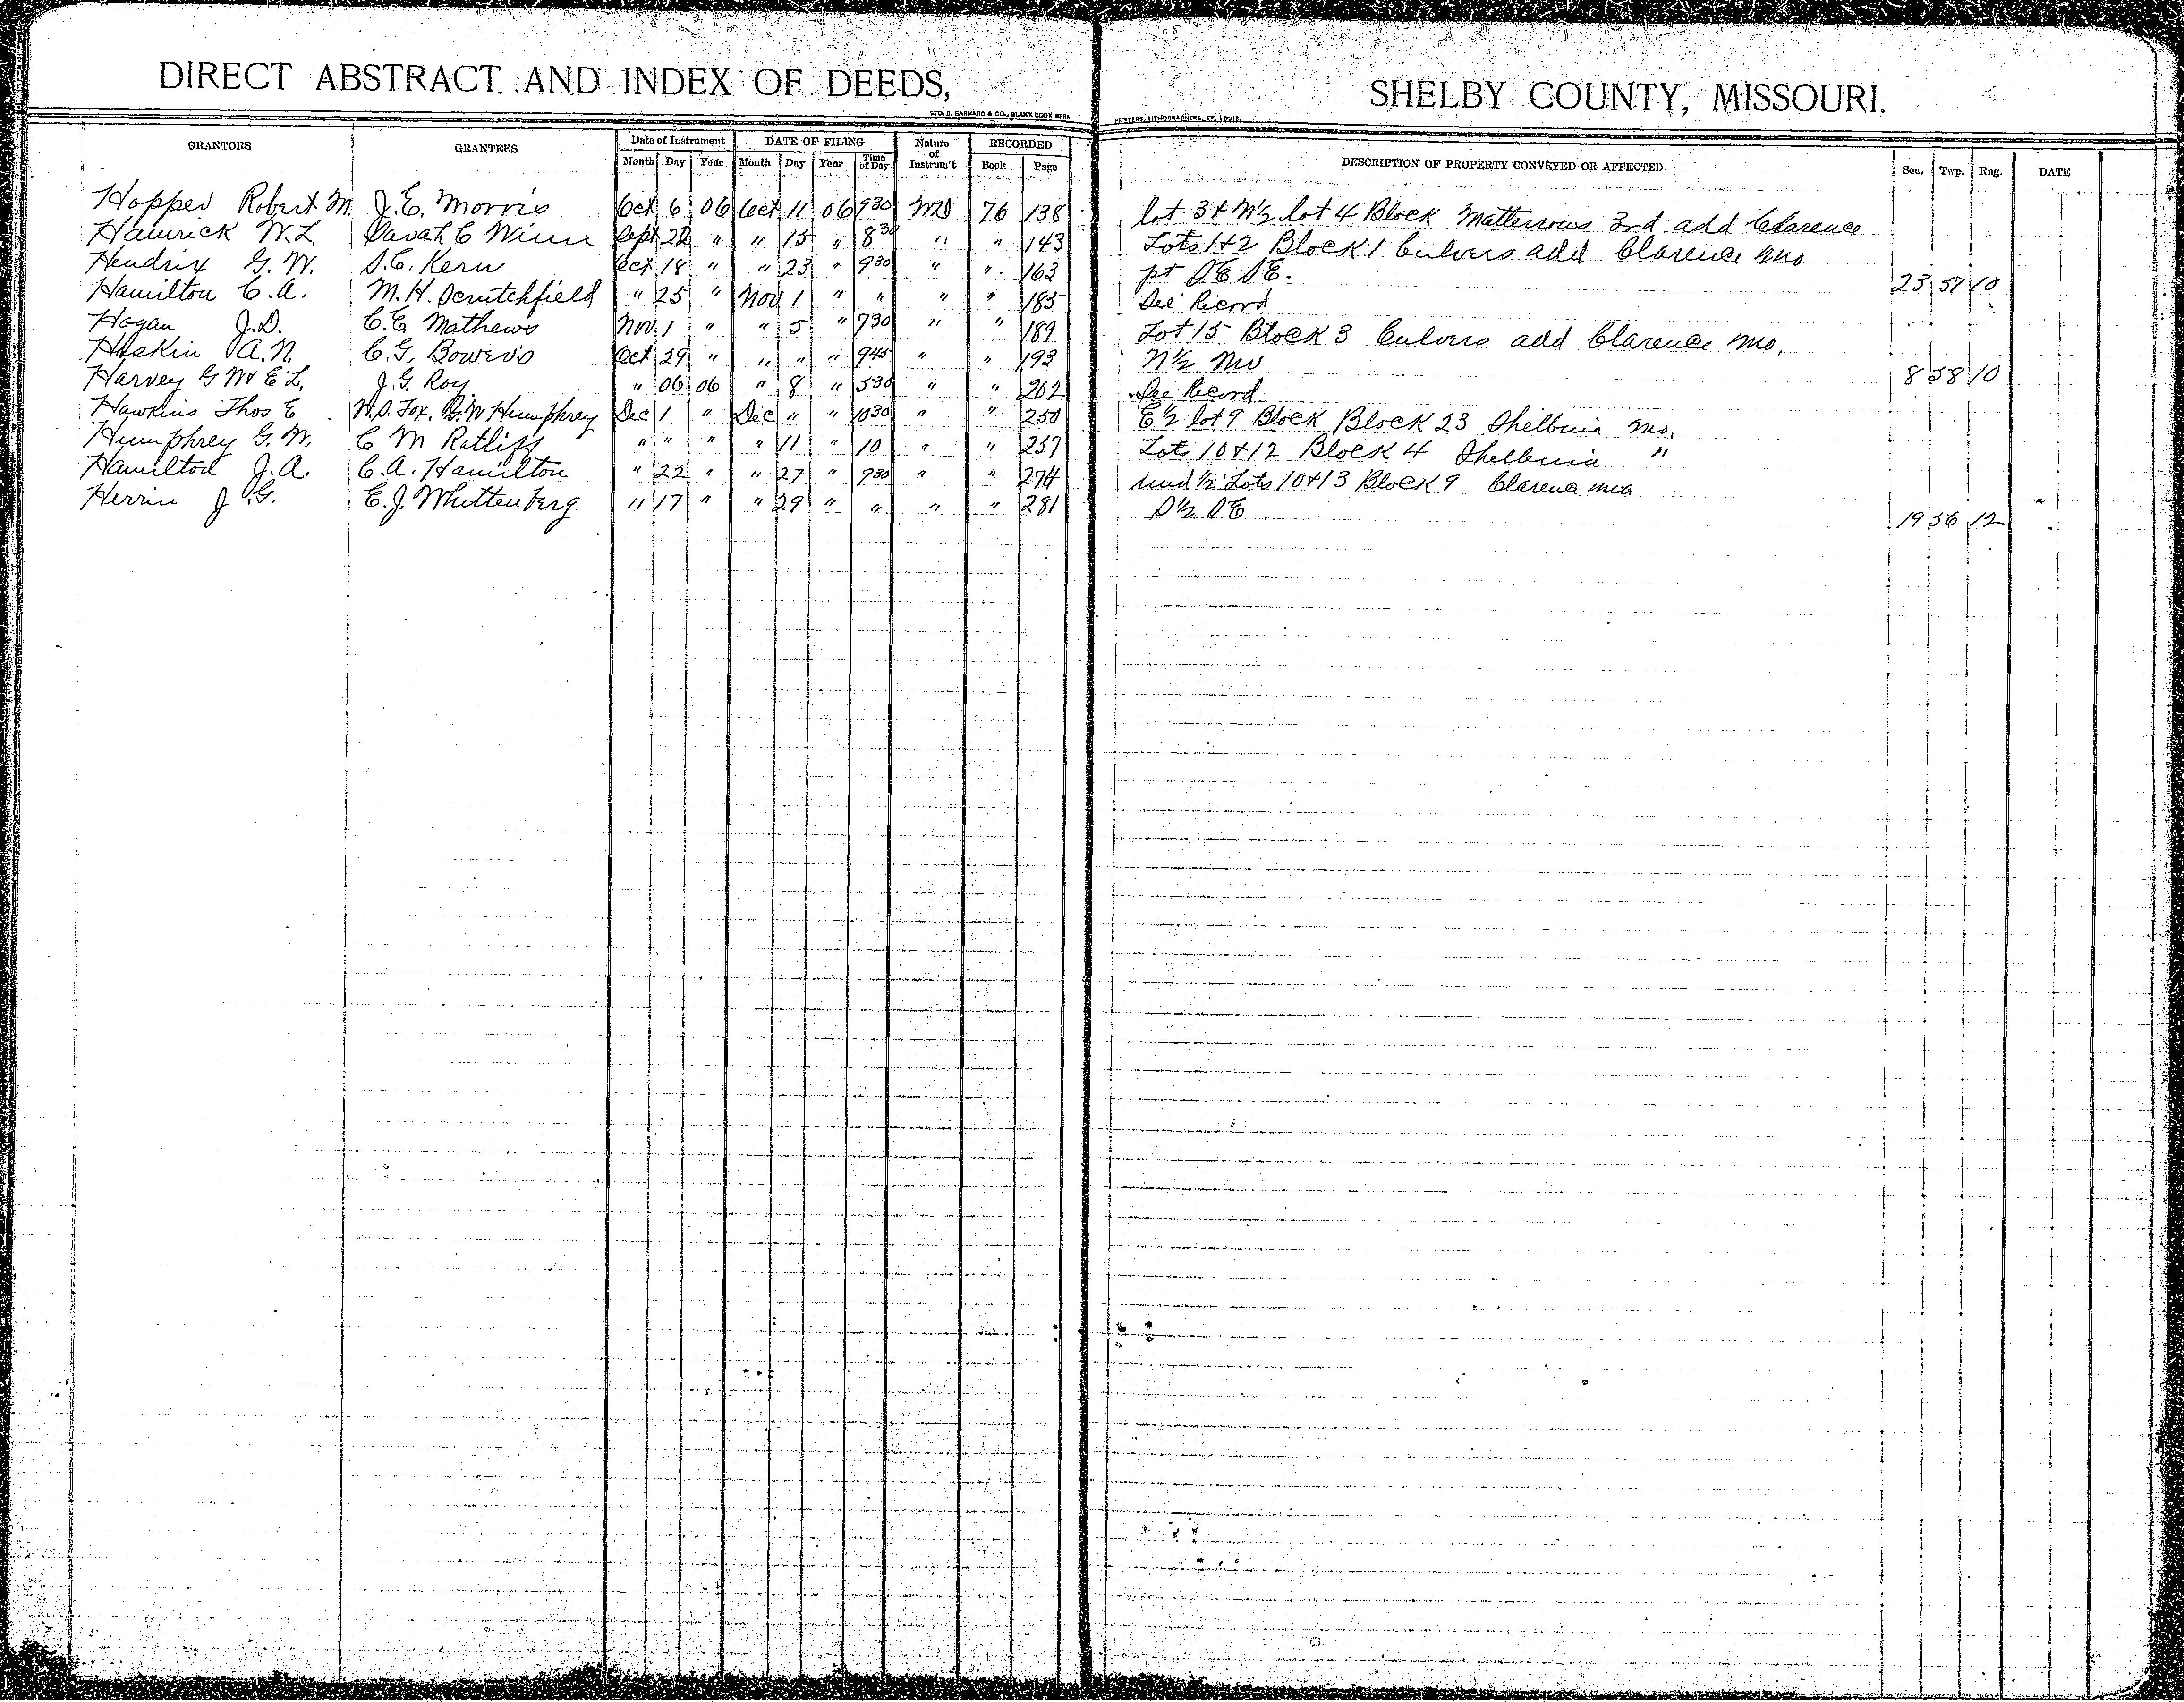 DIRECT ABSTRACT AND INDEX OF DEEDS, SHELBY COUNTY, MISSOURI.
GEO. D. BARNARD & CO., BLANK BOOK MFRS PRINTERS, LITHOGRAPHERS, ST. LOUIS.
GRANTORS GRANTEES Date of Instrument DATE OF FILING Nature of Instrum't RECORDED DESCRIPTION OF PROPERTY CONVEYED OR AFFECTED Sec. Twp. Rng. DATE
Month Day Year Month Day Year Time of Day Book Page
Hopper Robert M. J. E. Morris Oct 6 06 Oct 11 06 930 WD 76 138 lot 3 & W½ lot 4 Block Mattersons 3rd add Clarence
Hamrick W. L. Sarah E Winn Sept 22 " " 15 " 830 " " 143 Lots 1 & 2 Block 1 Culvers add Clarence Mo
Hendrix G. W. S. E. Kern Oct 18 " " 23 " 930 " " 163 pt SE SE. 23 57 10
Hamilton C. A. M. H. Scrutchfield " 25 " Nov 1 " " " " 185 See Record
Hogan J. D. C. E. Mathews Nov. 1 " " 5 " 730 " " 189 Lot 15 Block 3 Culvers add Clarence Mo.
Haskin A. N. C. G. Bowers Oct 29 " " " " 945 " " 193 N½ NW 8 58 10
Harvey G W & E L. J. G. Roy " 06 06 " 8 " 530 " " 202 See Record
Hawkins Thos E W. D. Fox, G. W Humphrey Dec 1 " Dec " " 1030 " " 250 E½ lot 9 Block Block 23 Shelbina Mo.
Humphrey G. W. C M Ratliff " " " " 11 " 10 " " 257 Lots 10 & 12 Block 4 Shelbina "
Hamilton J. A. C. A. Hamilton " 22 " " 27 " 930 " " 274 und ½ Lots 10 & 13 Block 9 Clarence Mo
Herrin J. G. E. J. Whittenberg " 17 " " 29 " " " " 281 S½ SE 19 56 12